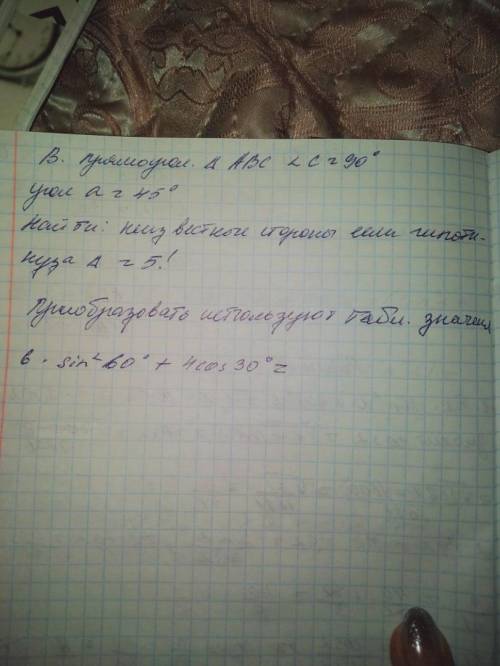 В. прямоугол. Δ ABC ∠C = 90°
угол a = 45°
Найти: неизвестной стороны если гипоти-
нуза Δ = 5!
Приобразовать используют табл. значения
6 · sin² 60° + 4cos 30° =